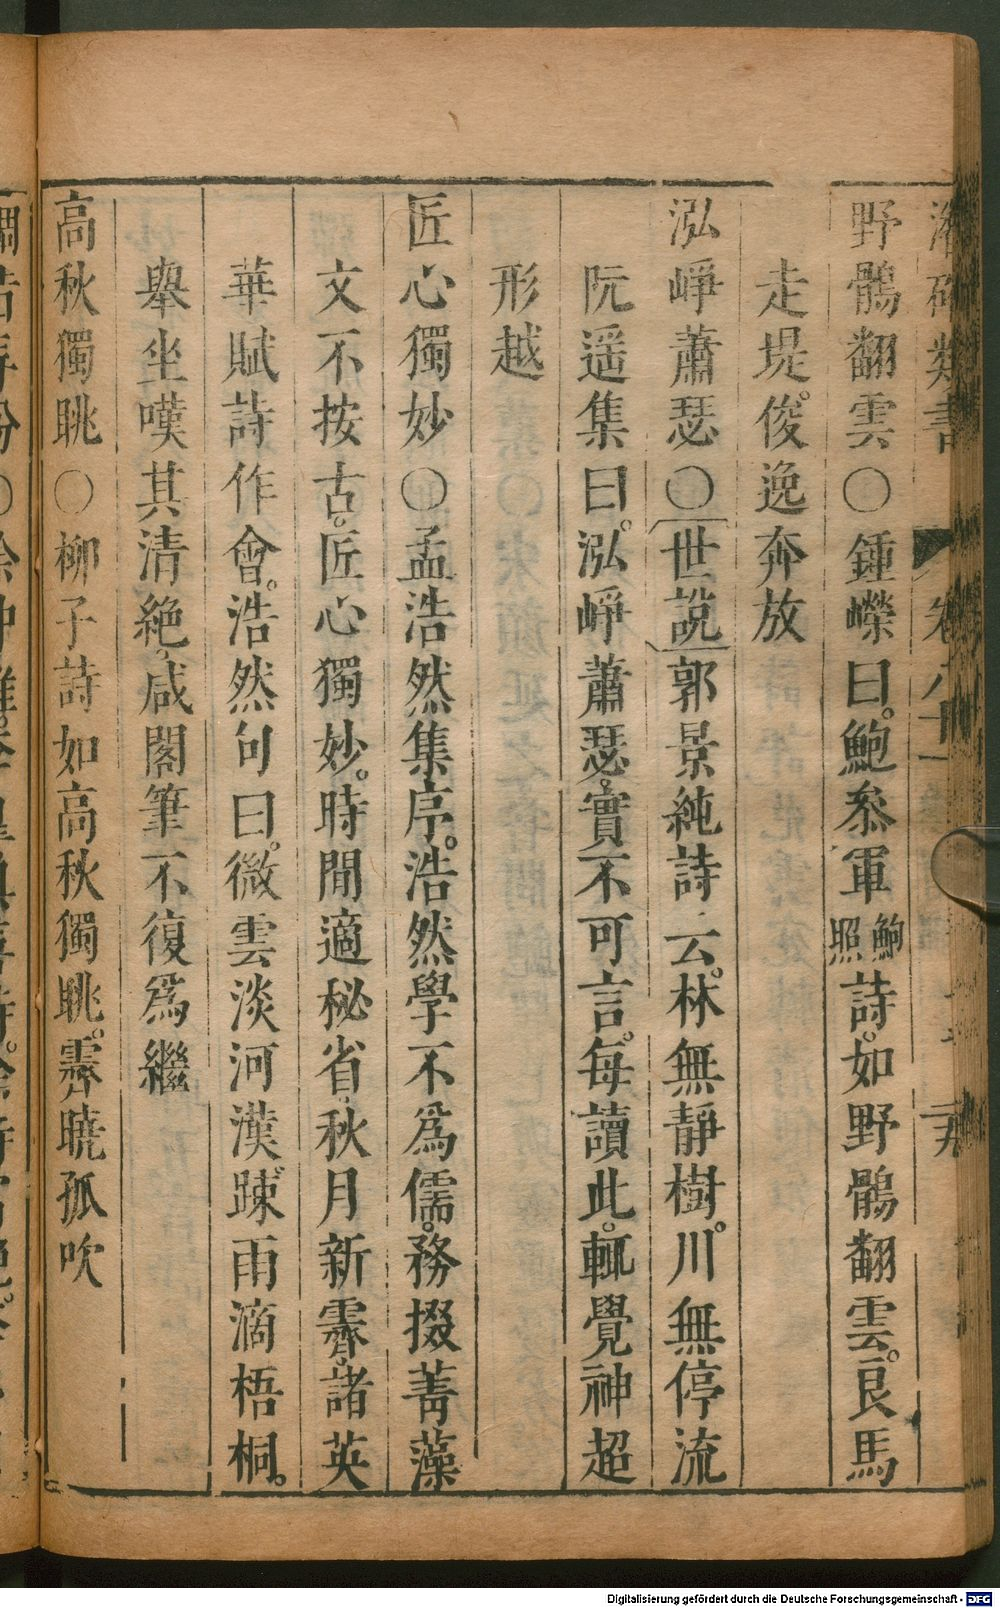 潛確類書 卷八十一 二九
野鶻翻雲〇鍾嶸曰。鮑叅軍鮑照詩。如野鶻翻雲。良馬
走堤。俊逸奔放
泓崢蕭瑟〇世說郭景純詩云。林無靜樹。川無停流
阮遥集曰。泓崢蕭瑟。實不可言。每讀此。輒覺神超
形越
匠心獨妙〇孟浩然集序。浩然學不爲儒。務掇菁藻
文不按古。匠心獨妙。時閒適秘省。秋月新霽。諸英
華賦詩作會。浩然句曰。微雲淡河漢。踈雨滴梧桐。
舉坐嘆其清絶。咸閣筆不復爲繼
高秋獨眺〇柳子詩如高秋獨眺。霽曉孤吹
Digitalisierung gefördert durch die Deutsche Forschungsgemeinschaft - DFG